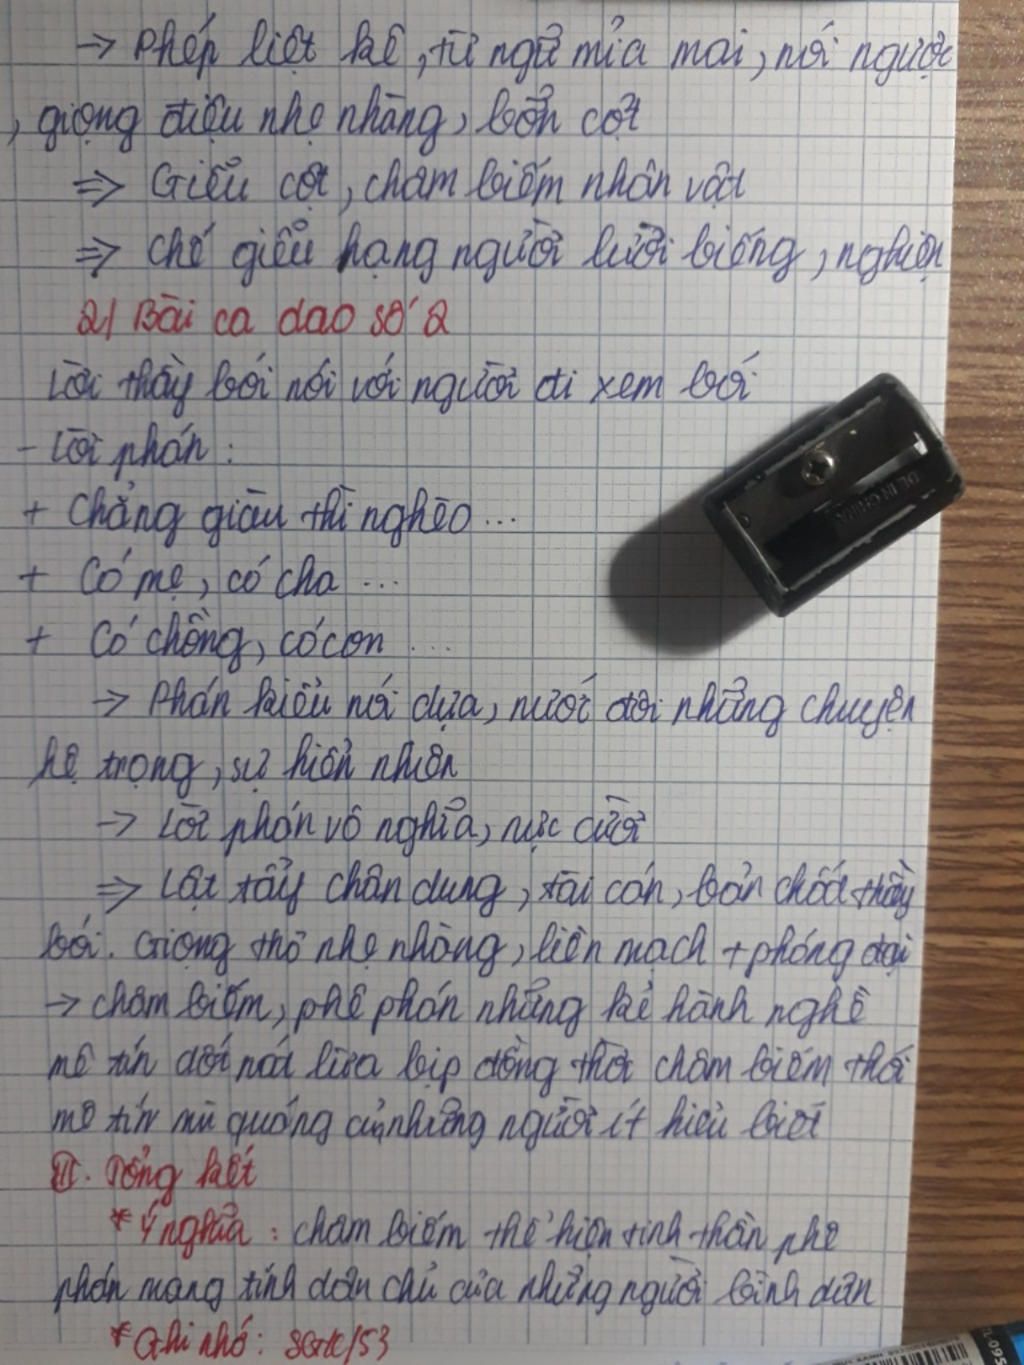 → Phép liệt kê, từ ngữ mỉa mai, nói ngược
, giọng điệu nhẹ nhàng, bỡn cợt
⇒ Giễu cợt, châm biếm nhân vật
⇒ chế giễu hạng người lười biếng, nghiện
2/ Bài ca dao số 2
Lời thầy bói nói với người đi xem bói
- Lời phán :
+ Chẳng giàu thì nghèo ...
+ Có mẹ, có cha ...
+ Có chồng, có con ...
→ Phán kiểu nói dựa, nước đôi những chuyện
hệ trọng, sự hiển nhiên
→ Lời phán vô nghĩa, nực cười
⇒ Lật tẩy chân dung, tài cán, bản chất thầy
bói. Giọng thơ nhẹ nhàng, liền mạch + phóng đại
→ châm biếm, phê phán những kẻ hành nghề
mê tín dối nát lừa bịp đồng thời châm biếm thói
mê tín mù quáng của những người ít hiểu biết
III. Tổng kết
* Ý nghĩa : châm biếm thể hiện tinh thần phê
phán mang tính dân chủ của những người bình dân
* Ghi nhớ : SGK/53